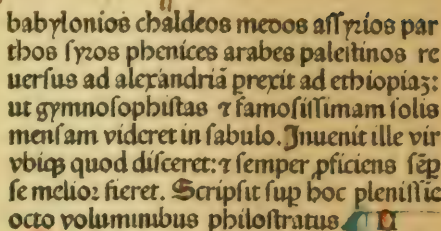 babylonios chaldeos medos aſſyrios par
thos ſyros phenices arabes paleſtinos re
uerſus ad alexandriā prexit ad ethiopiaꝫ:
ut gymnoſophiſtas ⁊ famoſiſſimam ſolis
menſam videret in ſabulo. Inuenit ille vir
vbiqꝫ quod diſceret: ⁊ ſemper ꝓficiens ſēꝑ
ſe melior fieret. Scripſit ſup hoc pleniſſie
octo voluminibus philoſtratus